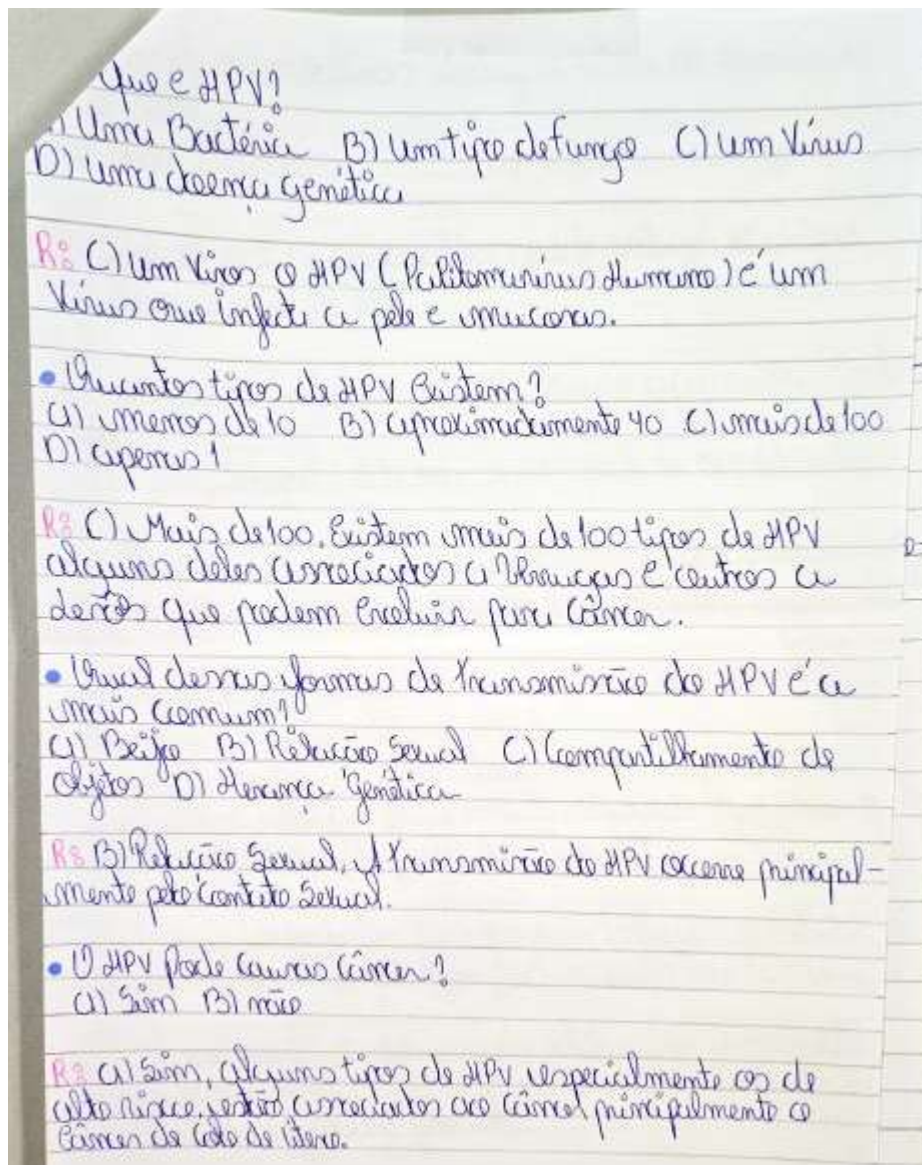 que e HPV?
Uma Bactéria B) um tipo de fungo C) um Vírus
D) uma doença genética
R: C) um Viros o HPV (Papilomavírus Humano) é um
Vírus que infecta a pele e mucosas.
• Quantos tipos de HPV Existem?
a) menos de 10 B) aproximadamente 40 C) mais de 100
D) apenas 1
R: C) Mais de 100. Existem mais de 100 tipos de HPV
alguns deles associados a Verrugas e outros a
que podem Evoluir para Câncer.
• Qual dessas formas de transmissão do HPV é a
mais comum?
a) Beijo B) Relação Sexual C) Compartilhamento de
objetos D) Herança Genética
R: B) Relação Sexual, A transmissão do HPV ocorre principal-
mente pelo contato Sexual.
• O HPV Pode Câncer?
a) Sim B) não
R: a) Sim, alguns tipos de HPV especialmente os de
alto risco, estão associados ao principalmente o
Câncer de Colo de Útero.